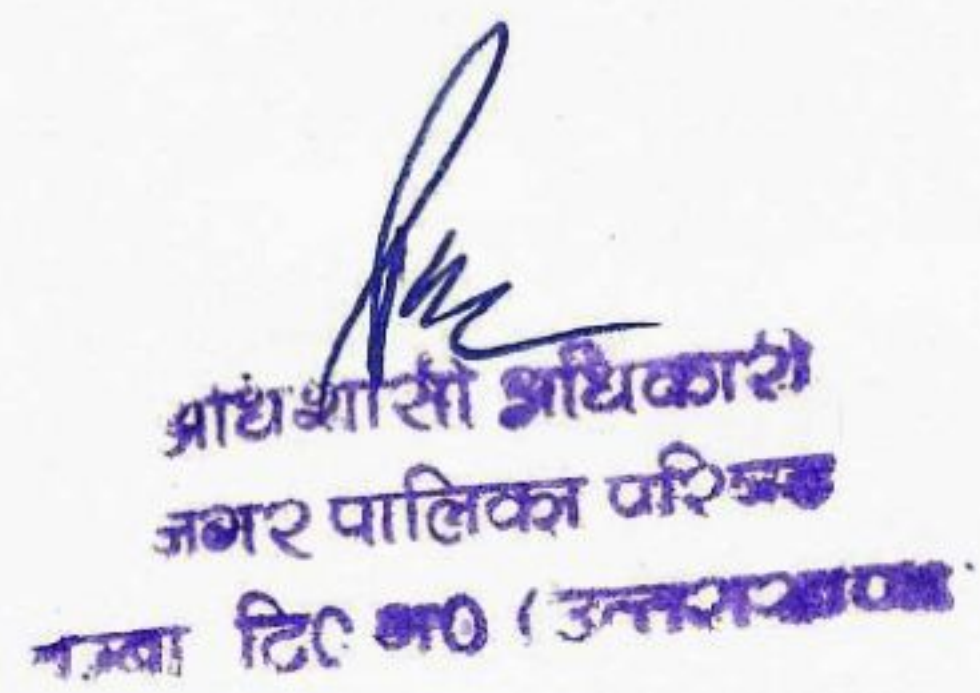 अधिशासी अधिकारी
नगर पालिका परिषद
चम्बा टि० ग० ( उत्तराखण्ड